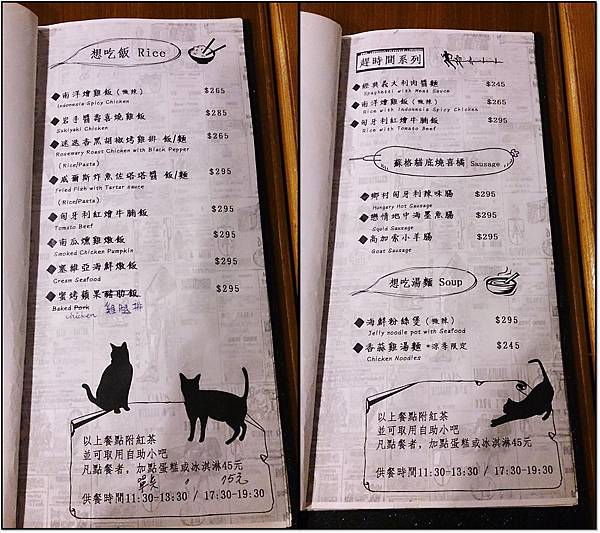 想吃飯 Rice
南洋燴雞飯(微辣) $265
Indonesia Spicy Chicken
岩手醬壽喜燒雞飯 $285
Sukiyaki Chicken
迷迭香黑胡椒烤雞排 飯/麵 $265
Rosemary Roast Chicken with Black Pepper
(Rice/Pasta)
威爾斯炸魚佐塔塔醬 飯/麵 $295
Fried Fish with Tartar sauce
(Rice/Pasta)
匈牙利紅燴牛腩飯 $295
Tomato Beef
南瓜燻雞燉飯 $295
Smoked Chicken Pumpkin
塞維亞海鮮燉飯 $295
Cream Seafood
蜜烤蘋果豬肋飯 $295
雞腿排
Baked Pork
chicken
以上餐點附紅茶
並可取用自助小吧
凡點餐者,加點蛋糕或冰淇淋45元
單點 75元
供餐時間11:30-13:30 / 17:30-19:30
趕時間系列
經典義大利肉醬麵 $245
Spaghetti with Meat Sauce
南洋燴雞飯(微辣) $265
Rice with Indonesia Spicy Chicken
匈牙利紅燴牛腩飯 $295
Rice with Tomato Beef
蘇格貓底燒喜橘 Sausage
鄉村匈牙利辣味腸 $295
Hungary Hot Sausage
戀情地中海墨魚腸 $295
Squid Sausage
高加索小羊腸 $295
Goat Sausage
想吃湯麵 Soup
海鮮粉絲煲(微辣) $295
Jelly noodle pot with Seafood
香蒜雞湯麵 *涼季限定 $245
Chicken Noodles
以上餐點附紅茶
並可取用自助小吧
凡點餐者,加點蛋糕或冰淇淋45元
供餐時間11:30-13:30 / 17:30-19:30